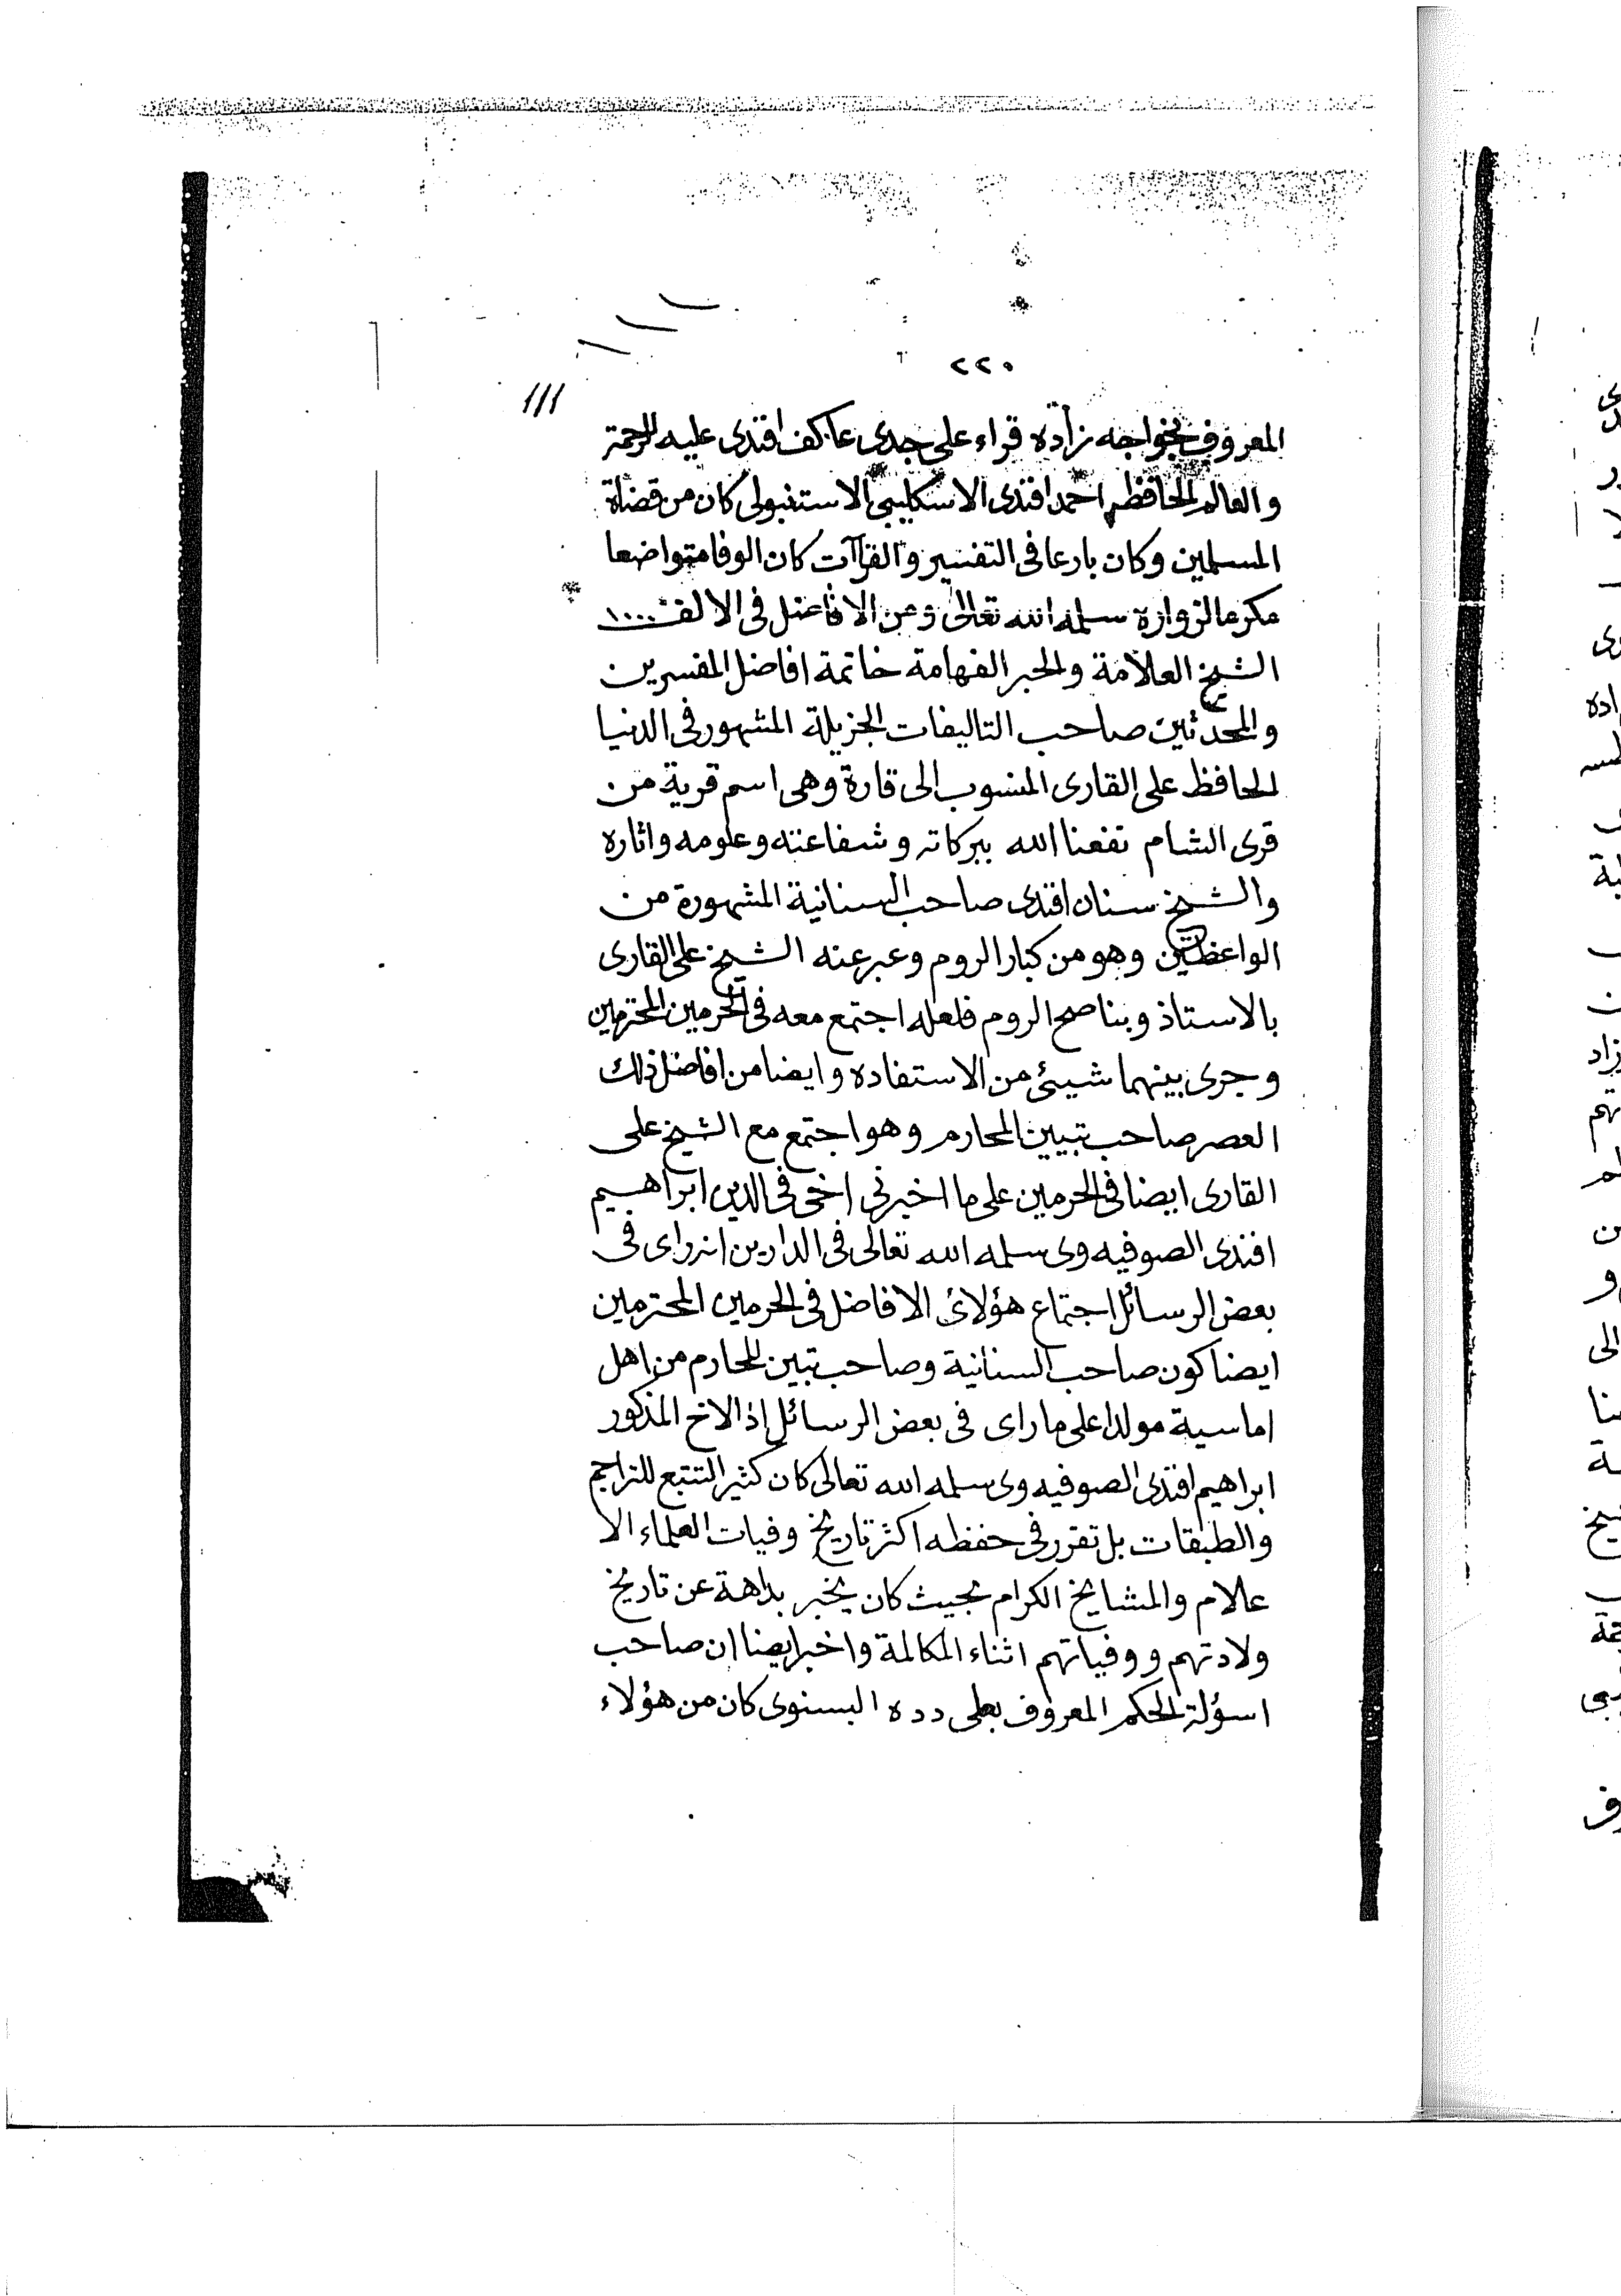 ٢٢٥
١١١
المعروف بخواجه زاده قراء على جدى عاكف افندى عليه الرحمة
والعالم الحافظ احمد افندى الاسكليبى الاستنبولى كان من قضاة
المسلمين وكان بارعا فى التفسير والقرآآت كان الوفا متواضعا
مكرما لزواره سلمه الله تعالى ومن الافاضل فى الالف ١٠٠٠
الشيخ العلامة والحبر الفهامة خاتمة افاضل المفسرين
والمحدثين صاحب التاليفات الجزيلة المشهور فى الدنيا
الحافظ على القارى المنسوب الى قارة وهى اسم قرية من
قرى الشام نفعنا الله ببركاته وشفاعته وعلومه واثاره
والشيخ سنان افندى صاحب السنانية المشهورة من
الواعظين وهو من كبار الروم وعبر عنه الشيخ على القارى
بالاستاذ وبناصح الروم فلعله اجتمع معه فى الحرمين المحترمين
وجرى بينهما شيئ من الاستفاده وايضا من افاضل ذلك
العصر صاحب تبيين المحارم وهو اجتمع مع الشيخ على
القارى ايضا فى الحرمين على ما اخبرنى اخى فى الدين ابراهيم
افندى الصوفيه وى سلمه الله تعالى فى الدارين انه راى فى
بعض الرسائل اجتماع هؤلائ الافاضل فى الحرمين المحترمين
ايضا كون صاحب السنانية وصاحب تبين المحارم من اهل
اماسية مولدا على ما راى فى بعض الرسائل اذ الاخ المذكور
ابراهيم افندى الصوفيه وى سلمه الله تعالى كان كثير التتبع للتراجم
والطبقات بل تقرر فى حفظه اكثر تاريخ وفيات العلماء الا
علام والمشايخ الكرام بحيث كان يخبر بداهة عن تاريخ
ولادتهم ووفياتهم اثناء المكالمة واخبر ايضا ان صاحب
اسؤلة الحكم المعروف بعلى دده البسنوى كان من هؤلاء